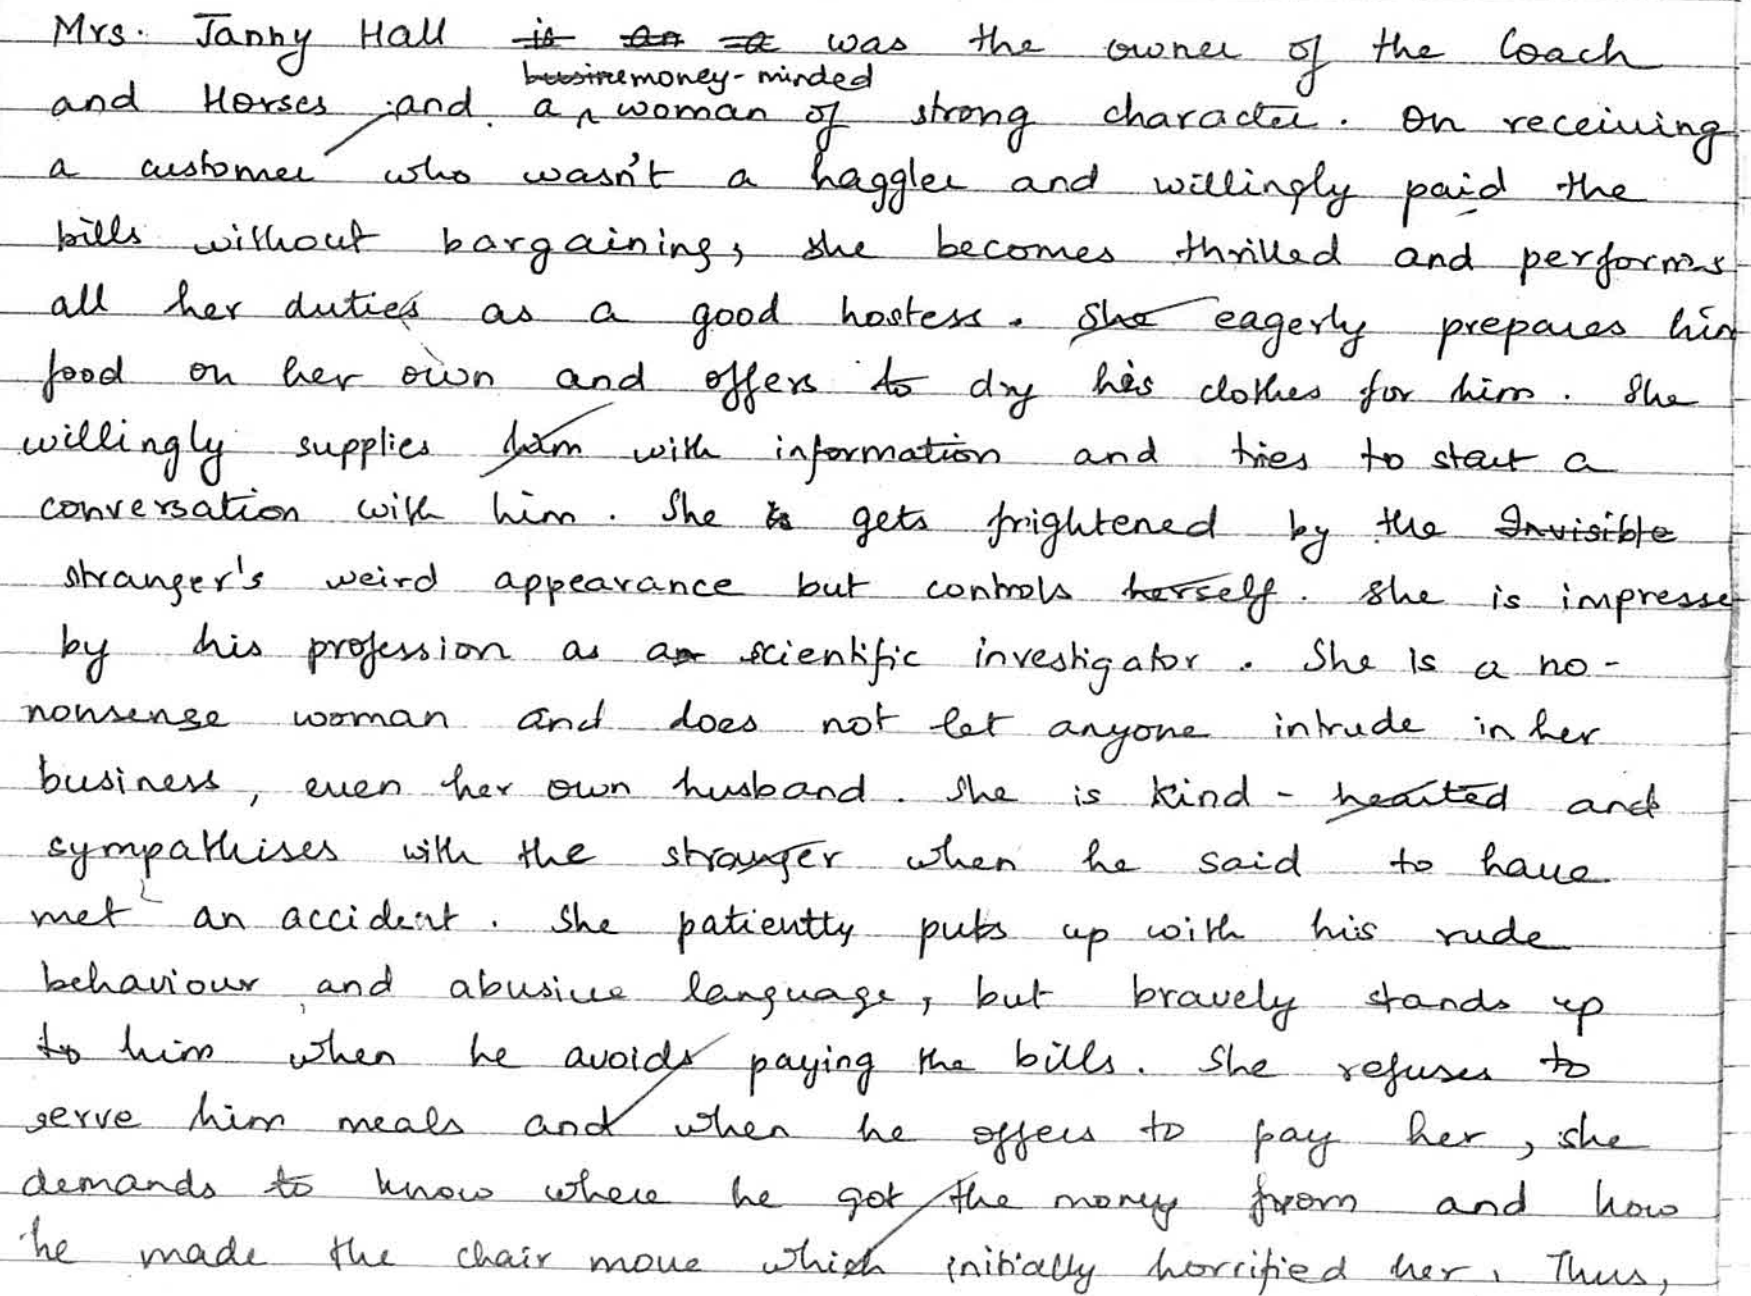 Mrs. Janny Hall is an a was the owner of the Coach
busine money-minded
and Horses and a ^ woman of strong character. On receiving
a customer who wasn't a haggler and willingly paid the
bills without bargaining, she becomes thrilled and performs
all her duties as a good hostess. She eagerly prepares him
food on her own and offers to dry his clothes for him. She
willingly supplies him with information and tries to start a
conversation with him. She is gets frightened by the Invisible
stranger's weird appearance but controls herself. She is impresse
by his profession as a scientific investigator. She is a no-
nonsense woman and does not let anyone intrude in her
business, even her own husband. She is kind-hearted and
sympathises with the stranger when he said to have
met an accident. She patiently puts up with his rude
behaviour and abusive language, but bravely stands up
to him when he avoids paying the bills. She refuses to
serve him meals and when he offers to pay her, she
demands to know where he got the money from and how
he made the chair move which initially horrified her. Thus,